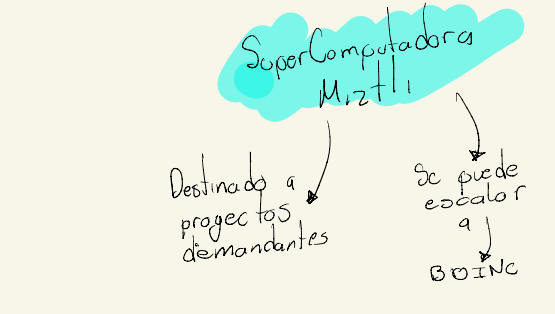 SuperComputadora
Miztli
Destinado a
proyectos
demandantes
Se puede
escalar
a
BOINC